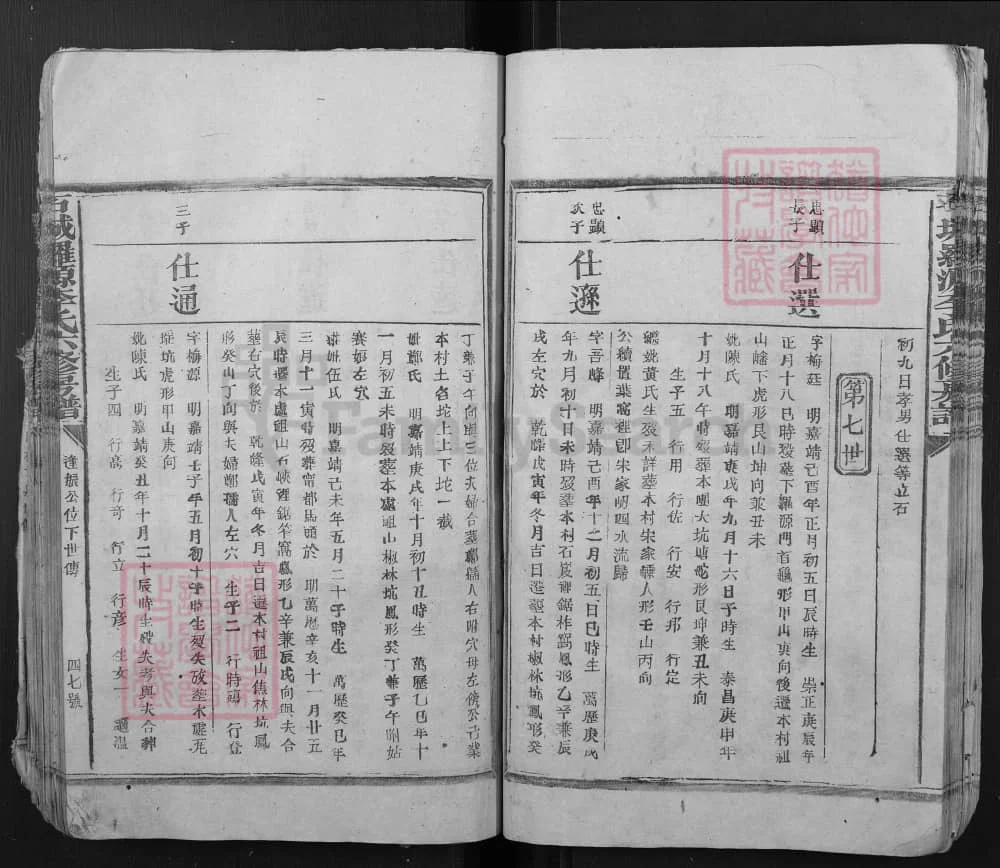 初九日孝男仕選等立石
第七世
忠顯
長子
仕選
字梅廷 明嘉靖己酉年正月初五日辰時生 崇正庚辰年
正月十八巳時歿葬下羅源門首龜形甲山庚向後遷本村祖
山㟙下虎形艮山坤向兼丑未
妣陳氏 明嘉靖庚戌年九月十六日子時生 泰昌庚申年
十月十八午時歿葬本里大坑塘蛇形艮坤兼丑未向
生子五 行用 行佐 行安 行邦 行定
繼妣黃氏生歿未詳葬本村朱家 人形壬山丙向
公續置葉窩裡卽朱家 四水流歸
忠顯
次子
仕遜
字吾峰 明嘉靖己酉年十二月初五日巳時生 萬歷庚戌
年九月初十日未時歿葬本村石 裡鋸柞窩鳳形乙辛兼辰
戌左穴於 乾隆戊寅年冬月吉日遷葬本村椒林坑鳳形癸
丁兼子午向與三位夫婦合葬 儒人右附穴母左傍公己業
本村土名 上上下 一截
妣鄭氏 明嘉靖庚戌年十月初十丑時生 萬歷乙巳年十
一月初五未時歿葬本處祖山椒林坑鳳形癸丁兼子午 姑
裏如左穴
繼妣伍氏 明嘉靖己未年五月二十子時生 萬歷癸巳年
三月十二寅時歿葬甯都馬頭於 明萬歷辛亥十一月廿五
辰時遷本處祖山石峽裡鋸柞窩鳳形乙辛兼辰戌向與夫合
葬右穴後於 乾隆戊寅年冬月吉日遷本村祖山焦林坑鳳
形癸山丁向與夫婦 儒人左穴 生子二 行時 行登
三子
仕通
字梅源 明嘉靖壬子年五月初十午時生歿失攷葬本處尾
瑤坑虎形甲山庚向
妣陳氏 明嘉靖癸丑年十月二十辰時生歿失考與夫合葬
生子四 行高 行奇 行立 行彥 生女一 適溫
石城羅源李氏六修房譜
逢振公位下世傳
四七號